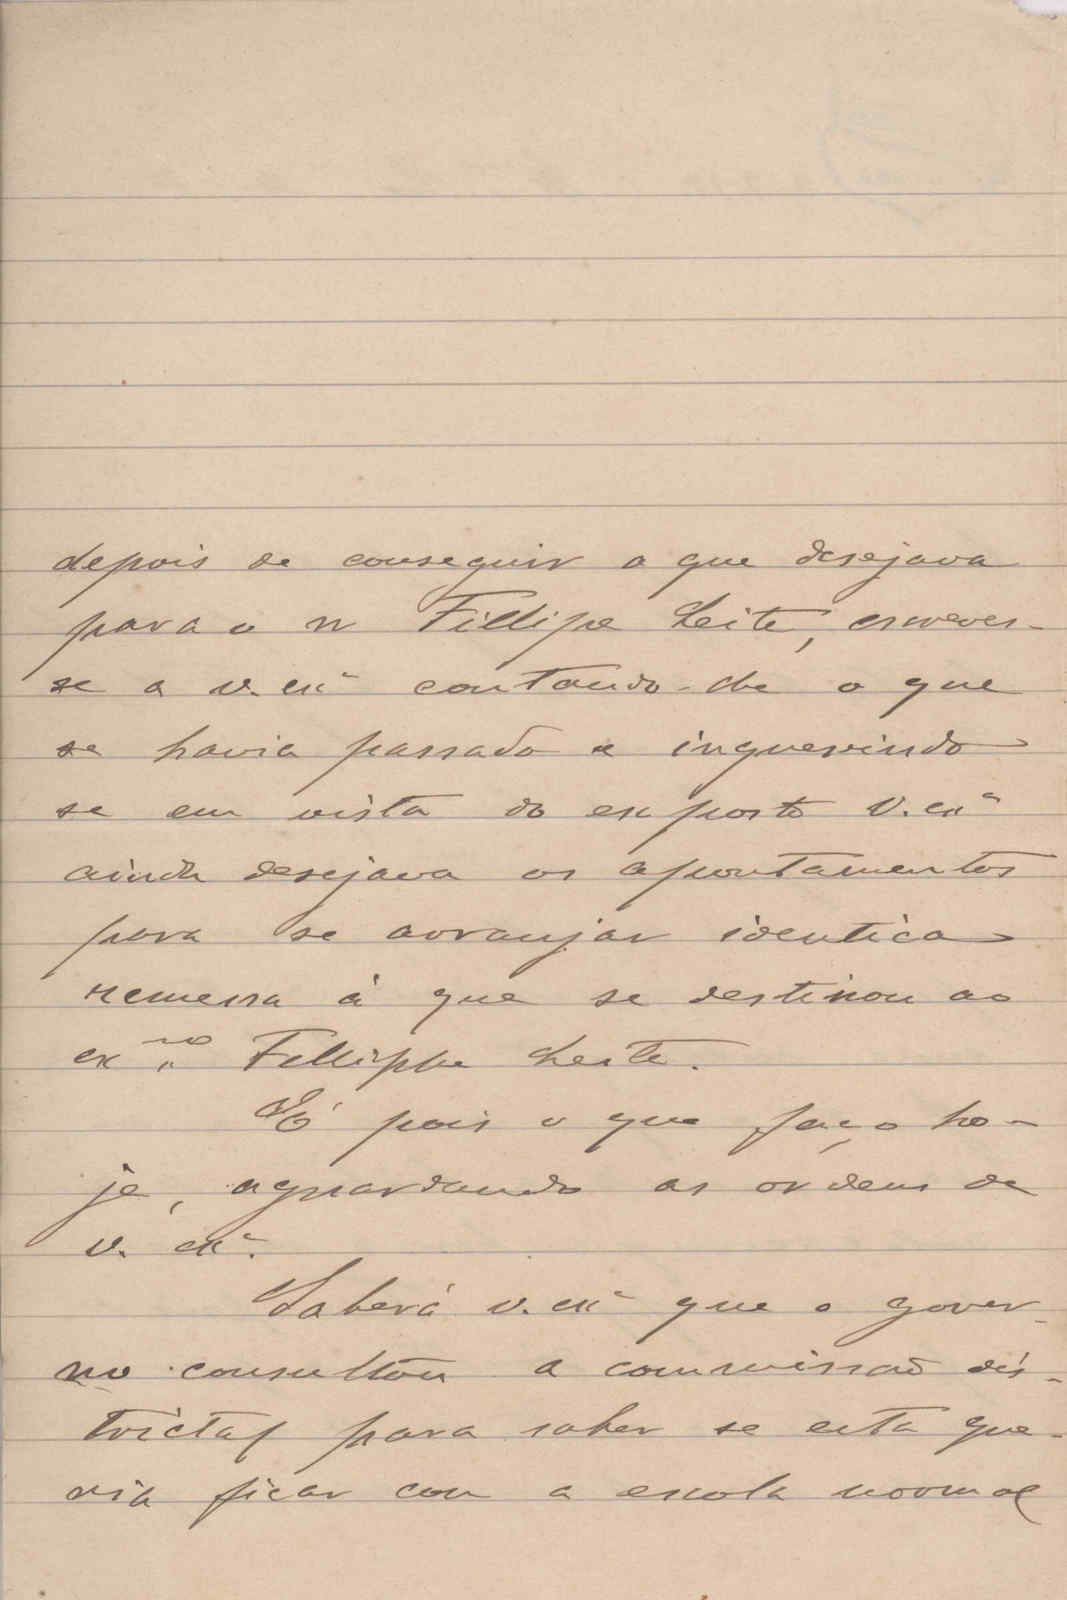 depois de conseguir o que desejava
para o sr Fillipe Leite, escreves-
se a v. exª contando-lhe o que
se havia passado e inquerindo
se em vista do exposto V. exª
ainda desejava os apontamentos
para se arranjar identica
remessa á que se destinou ao
ex.mo Fillippe Leite.
É pois o que faço ho-
je, aguardando as ordens de
v. exª.
Saberá v. exª que o gover-
no consultou a commissão dis-
trictal para saber se esta que-
ria ficar com a escola normal